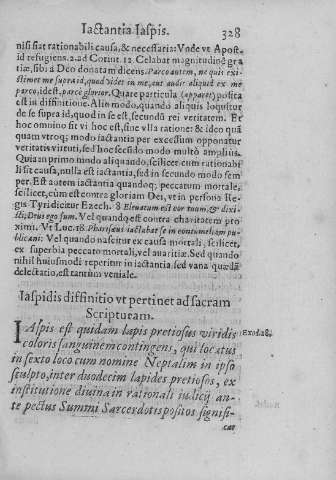 Iactantia Iaspis. 328
nisi fiat rationabili causa, & necessaria: Vnde vt Apost.
id refugiens. 2. ad Corint. 12. Celabat magnitudinē gra
tiæ, sibi à Deo donatam dicens. Parco autem, ne quis exi-
stimet me supra id, quod videt in me, aut audit aliquid ex me
parco, id est, parcè glorier. Quare particula (apparet) posita
est in diffinitione. Alio modo, quando aliquis loquitur
de se supra id, quod in se est, secundū rei veritatem. Et
hoc omnino fit vi hoc est, sine vlla ratione: & ideo quā
quam vtroq; modo iactantia per excessum opponatur
veritatis virtuti, sed hoc secūdo modo multò ampliùs.
Quia in primo modo aliquando, scilicet cum rationabi
li fit causa, nulla est iactantia, sed in secundo modo sem
per. Est autem iactantia quandoq; peccatum mortale,
scilicet, cùm est contra gloriam Dei, vt in persona Re-
gis Tyri dicitur Ezech. 8 Eleuatum est cor tuum, & dixi-
sti; Deus ego sum. Vel quando est contra charitatem pro
ximi. Vt Luc. 18. Pharisæus iactabat se in contumeliam pu-
blicani: Vel quando nascitur ex causa mortali, scilicet,
ex superbia peccato mortali, vel auaritiæ. Sed quando
nihil huiusmodi reperitur in iactantia, sed vana quædā
delectatio, est tantùm veniale.
Iaspidis diffinitio vt pertinet ad sacram
Scripturam.
IAspis est quidam lapis pretiosus viridis Exod. 28.
coloris sanguinem contingens, qui locatus
in sexto loco cum nomine Neptalim in ipso
sculpto, inter duodecim lapides pretiosos, ex
institutione diuina in rationali iudicij an-
te pectus Summi Sarcerdotis positos signifi-
cat